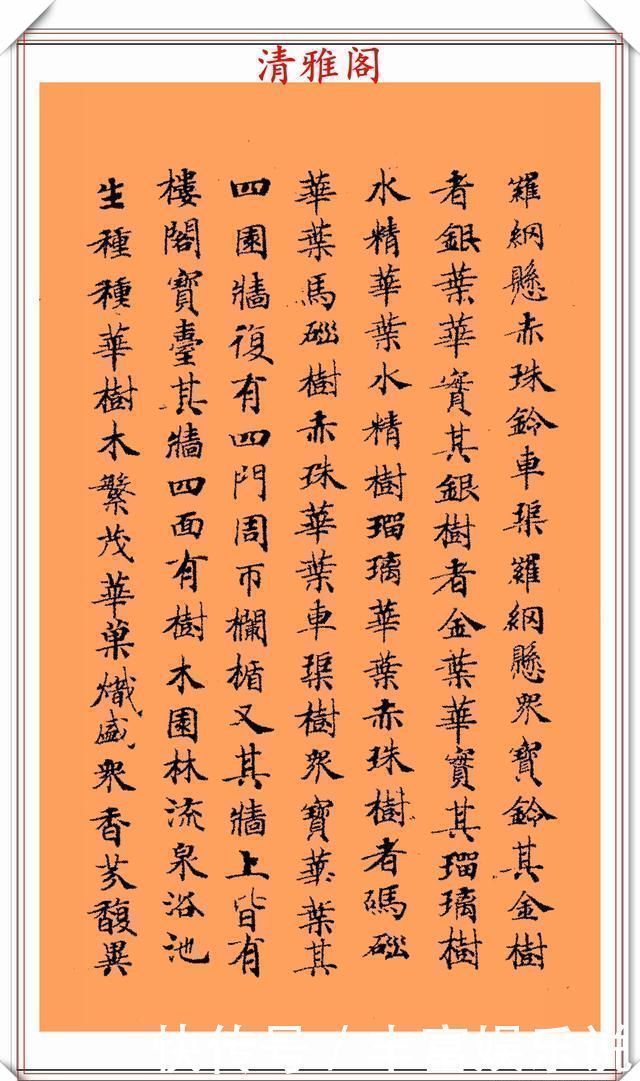 清雅阁
羅網懸赤珠鈴車渠羅網懸眾寶鈴其金樹
者銀葉華實其銀樹者金葉華實其瑠璃樹
水精華葉水精樹瑠璃華葉赤珠樹者碼磂
華葉馬磂樹赤珠華葉車渠樹眾寶華葉其
四園牆復有四門周帀欄楯又其牆上皆有
樓閣寶臺其牆四面有樹木園林流泉浴池
生種種華樹木繁茂華菓熾盛眾香芬馥異